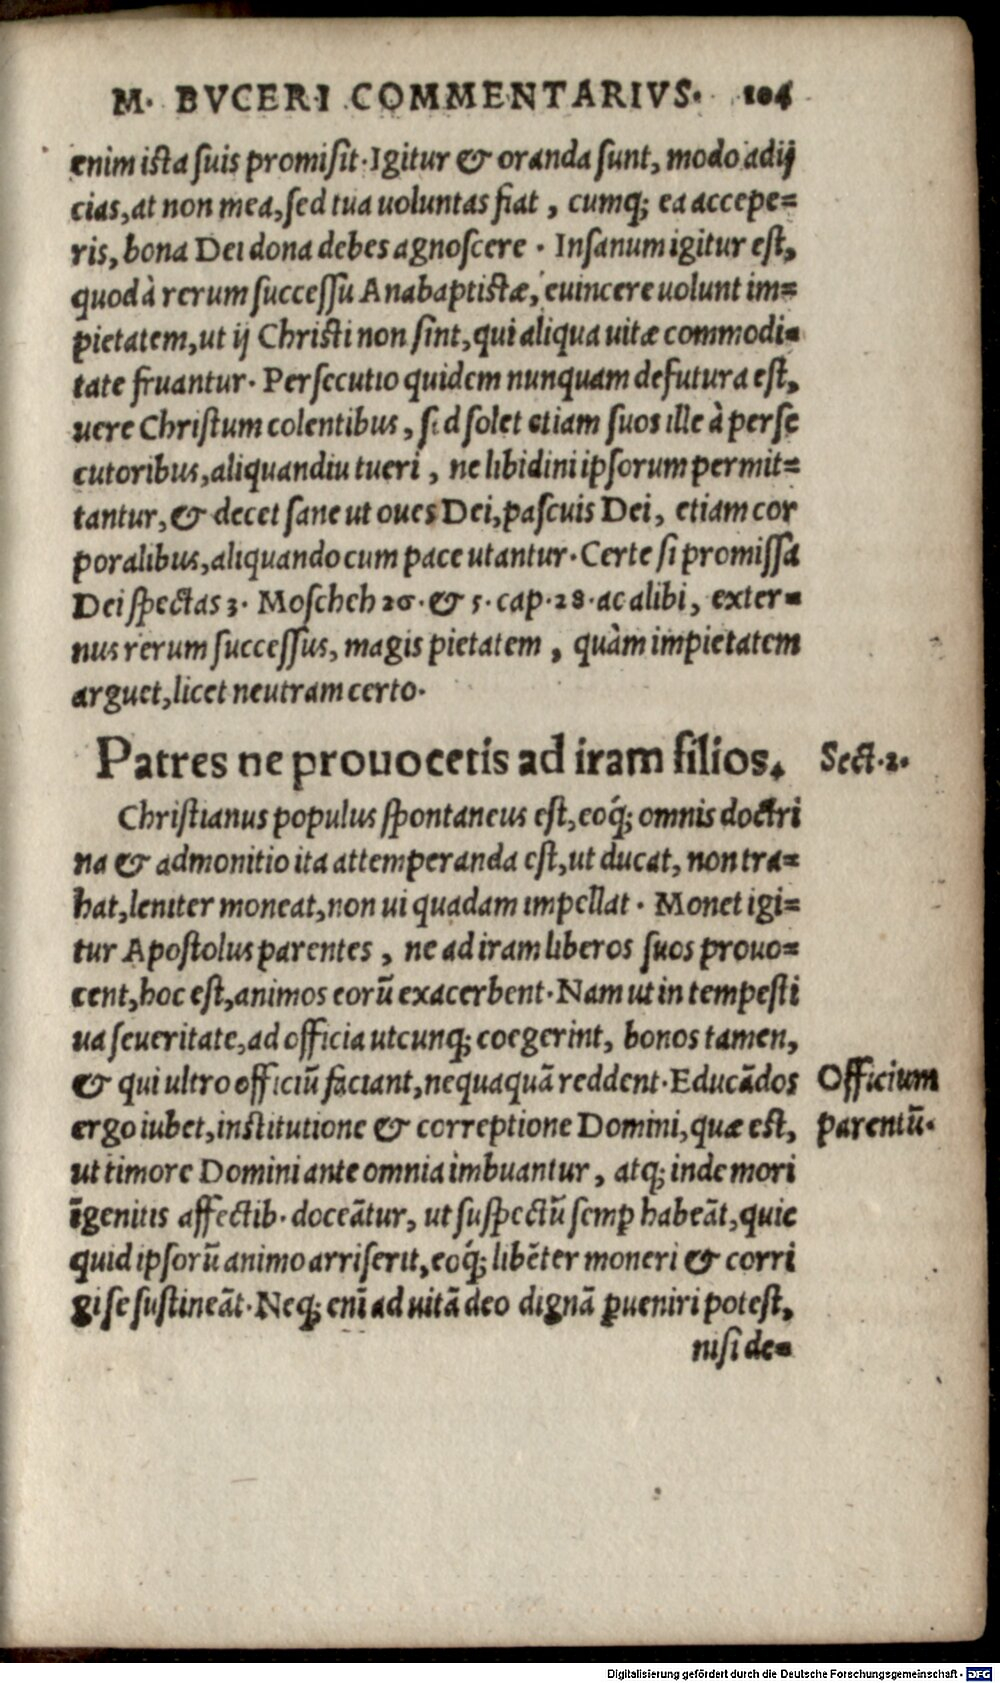 M. BVCERI COMMENTARIVS. 104
enim ista suis promisit. Igitur & oranda sunt, modo adij
cias, at non mea, sed tua uoluntas fiat, cumq; ea accepe=
ris, bona Dei dona debes agnoscere. Insanum igitur est,
quod à rerum successu Anabaptistæ, euincere uolunt im=
pietatem, ut ij Christi non sint, qui aliqua uitæ commodi=
tate fruantur. Persecutio quidem nunquam defutura est,
uere Christum colentibus, sed solet etiam suos ille à perse
cutoribus, aliquandiu tueri, ne libidini ipsorum permit=
tantur, & decet sane ut oues Dei, pascuis Dei, etiam cor
poralibus, aliquando cum pace utantur. Certe si promissa
Dei spectas 3. Moscheh 26. & 5. cap. 28. ac alibi, exter=
nus rerum successus, magis pietatem, quàm impietatem
arguet, licet neutram certo.
Patres ne prouocetis ad iram filios. Sect. 2.
Christianus populus spontaneus est, eoq́; omnis doctri
na & admonitio ita attemperanda est, ut ducat, non tra=
hat, leniter moneat, non ui quadam impellat. Monet igi=
tur Apostolus parentes, ne ad iram liberos suos prouo=
cent, hoc est, animos eorū exacerbent. Nam ut intempesti
ua seueritate, ad officia utcunq; coegerint, bonos tamen,
& qui ultro officiū faciant, nequaquā reddent. Educādos Officium
ergo iubet, institutione & correptione Domini, quæ est, parentū.
ut timore Domini ante omnia imbuantur, atq; inde mori
īgenitis affectib. doceātur, ut suspectū semꝑ habeāt, quic
quid ipsorū animo arriserit, eoq́; libēter moneri & corri
gi se sustineāt. Neq; enī ad uitā deo dignā ꝑueniri potest,
nisi de=
Digitalisierung gefördert durch die Deutsche Forschungsgemeinschaft - DFG